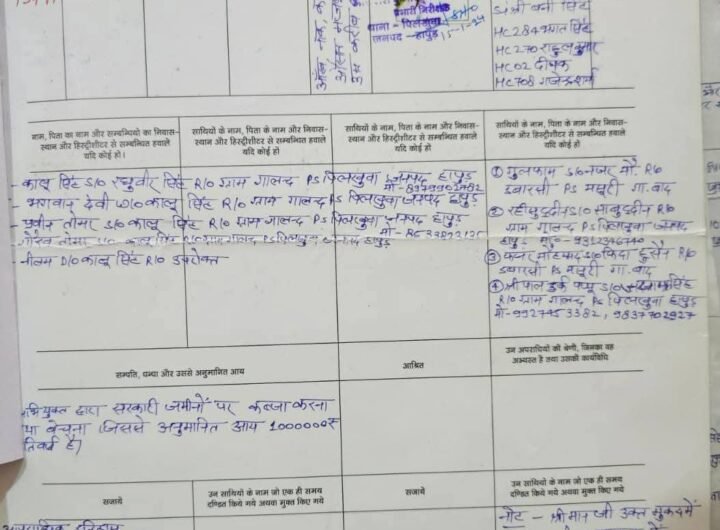 प्रभारी निरीक्षक
थाना - पिलखुवा
जनपद - हापुड़
HC 284 भगत सिंह
HC 270 राहुल कुमार
HC 02 दीपक
HC 708 गजेन्द्र शर्मा
नाम, पिता का नाम और सम्बन्धियों का निवास-
स्थान और हिस्ट्रीशीटर से सम्बन्धित हवाले
यदि कोई हो।
साथियों के नाम, पिता के नाम और निवास-
स्थान और हिस्ट्रीशीटर से सम्बन्धित हवाले
यदि कोई हो
साथियों के नाम, पिता के नाम और निवास-
स्थान और हिस्ट्रीशीटर से सम्बन्धित हवाले
यदि कोई हो
साथियों के नाम, पिता के नाम और निवास-
स्थान और हिस्ट्रीशीटर से सम्बन्धित हवाले
यदि कोई हो
- कालू सिंह S/O रघुवीर सिंह R/O ग्राम गालन्द PS पिलखुवा जनपद हापुड़
- भगवान देवी W/O कालू सिंह R/O ग्राम गालन्द PS पिलखुवा जनपद हापुड़
- प्रवीन तोमर S/O कालू सिंह R/O ग्राम गालन्द PS पिलखुवा जनपद हापुड़
गौरव तोमर S/O कालू सिंह R/O ग्राम गालन्द PS पिलखुवा जनपद हापुड़
- नीलम D/O कालू सिंह R/O उपरोक्त
① गुलफाम S/O नजर मौ. R/O
डबारसी PS मसूरी गा.बाद
② रहीमुद्दीन S/O साबुद्दीन R/O
ग्राम गालन्द PS पिलखुवा जनपद
हापुड़ मो०- 9312346740
③ S/O फिदा हुसैन R/O
डबारसी PS मसूरी गा.बाद
④ श्रीपाल उर्फ पप्पू S/O सिंह
R/O ग्राम गालन्द PS पिलखुवा हापुड़
मो-9927453382, 9837702927
सम्पति, धन्धा और उससे अनुमानित आय
आश्रित
उन अपराधियों की श्रेणी, जिनका वह
अभ्यस्त है तथा उसकी कार्यविधि
अभियुक्त द्वारा सरकारी जमीनों पर कब्जा करना
या बेचना (जिससे अनुमानित आय 1000000रु
प्रतिवर्ष है)
सजायें
उन साथियों के नाम जो एक ही समय
दण्डित किये गये अथवा मुक्त किए गये
सजायें
उन साथियों के नाम जो एक ही समय
दण्डित किये गये अथवा मुक्त किए गये
नोट - श्रीमान जी उक्त मुकदमें